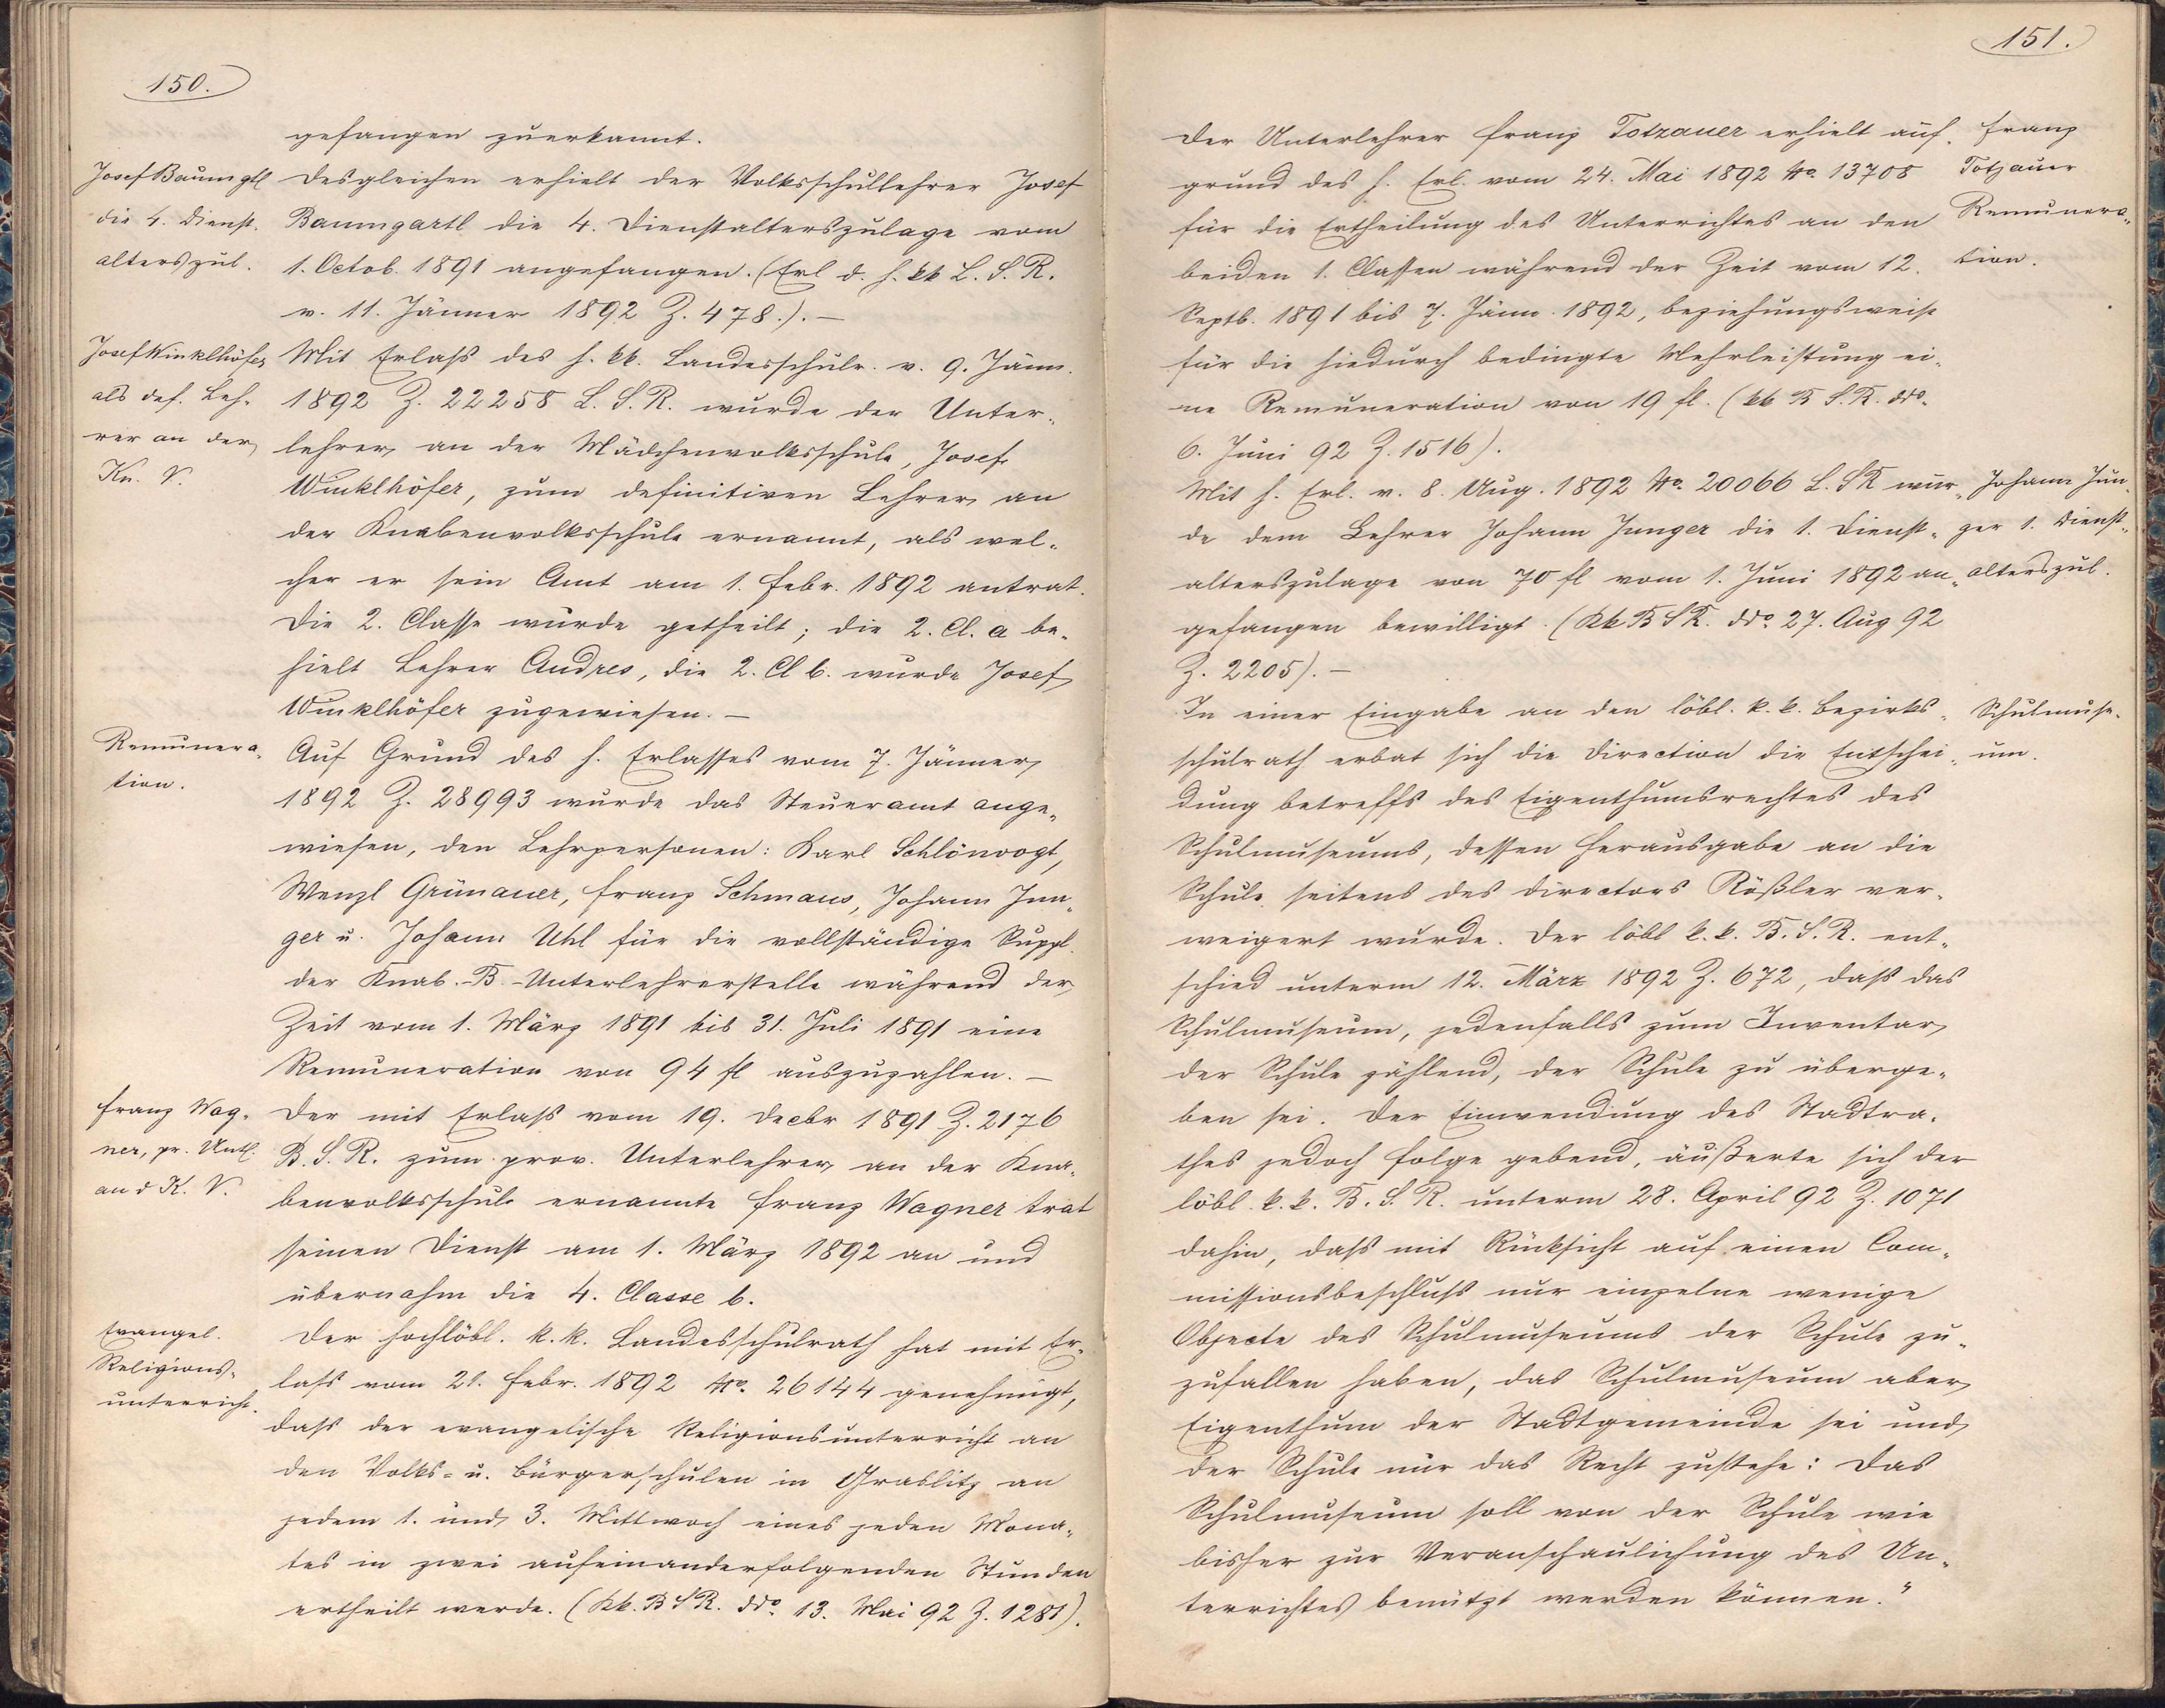 150.
gefangen zuerkannt.
Josef Baumgtl
die 4. Dienst-
alterszul.
Desgleichen erhielt der Volksschullehrer Josef
Baumgartl die 4. Dienstalterszulage vom
1. Octob. 1891 angefangen. (Erl d. h. kk L. S. R.
v. 11. Jänner 1892 Z. 478.). —
Josef Winklhöfer
als def. Leh-
rer an der
Kn. V.
Mit Erlaß des h. kk. Landesschulr. v. 9. Jänn.
1892 Z. 22258 L. S. R. wurde der Unter-
lehrer an der Mädchenvolksschule, Josef
Winklhöfer, zum definitiven Lehrer an
der Knabenvolksschule ernannt, als wel-
cher er sein Amt am 1. Febr. 1892 antrat.
Die 2. Classe wurde getheilt; die 2. Cl. a be-
hielt Lehrer Andres, die 2. Cl b. wurde Josef
Winklhöfer zugewiesen. —
Remunera-
tion.
Auf Grund des h. Erlasses vom 7. Jänner
1892 Z. 28993 wurde das Steueramt ange-
wiesen, den Lehrpersonen: Karl Schlönvogt,
Wenzl Grünauer, Franz Schmaus, Johann Jun-
ger u. Johann Uhl für die vollständige Suppl.
der Knab.-B.-Unterlehrerstelle während der
Zeit vom 1. März 1891 bis 31. Juli 1891 eine
Remuneration von 94 fl auszuzahlen. —
Franz Wag-
ner, pr. Untl.
an d K. V.
Der mit Erlaß vom 19. Decbr 1891 Z. 2176
B. S. R. zum prov. Unterlehrer an der Kna-
benvolksschule ernannte Franz Wagner trat
seinen Dienst am 1. März 1892 an und
übernahm die 4. Classe b.
Evangel.
Religions-
unterricht.
Der hochlöbl. k. k. Landesschulrath hat mit Er-
lass vom 21. Febr. 1892 No. 26144 genehmigt,
dass der evangelische Religionsunterricht an
den Volks- u. Bürgerschulen in Graslitz an
jedem 1. und 3. Mittwoch eines jeden Mona-
tes in zwei aufeinanderfolgenden Stunden
ertheilt werde. (kk. B S R. ddo. 13. Mai 92 Z. 1281).
151.
Der Unterlehrer Franz Totzauer erhielt auf-
grund des h. Erl. vom 24. Mai 1892 No. 13708
für die Ertheilung des Unterrichtes an den
beiden 1. Classen während der Zeit vom 12.
Septb. 1891 bis 7. Jänn. 1892, beziehungsweise
für die hiedurch bedingte Mehrleistung ei-
ne Remuneration von 19 fl. (kk B S. R. ddo.
6. Juni 92 Z. 1516).
Franz
Totzauer
Remunera-
tion.
Mit h. Erl. v. 8. Aug. 1892 No. 20066 L. S R wur-
de dem Lehrer Johann Junger die 1. Dienst-
alterszulage von 70 fl vom 1. Juni 1892 an-
gefangen bewilligt. (kk B S R. ddo. 27. Aug 92
Z. 2205). —
Johann Jun-
ger 1. Dienst-
alterszul.
In einer Eingabe an den löbl. k. k. Bezirks-
schulrath erbat sich die Direction die Entschei-
dung betreffs des Eigenthumsrechtes des
Schulmuseums, dessen Herausgabe an die
Schule seitens des Directors Rößler ver-
weigert wurde. Der löbl k. k. B. S. R. ent-
schied unterm 12. März 1892 Z. 672, dass das
Schulmuseum, jedenfalls zum Inventar
der Schule zählend, der Schule zu überge-
ben sei. Der Einwendung des Stadtra-
thes jedoch Folge gebend, äußerte sich der
löbl. k. k. B. S. R. unterm 28. April 92 Z. 1071
dahin, dass mit Rücksicht auf einen Com-
missionsbeschluss nur einzelne wenige
Objecte des Schulmuseums der Schule zu-
zufallen haben, das Schulmuseum aber
Eigenthum der Stadtgemeinde sei und
der Schule nur das Recht zustehe: Das
Schulmuseum soll von der Schule wie
bisher zur Veranschaulichung des Un-
terrichtes benützt werden können."
Schulmuse-
um.